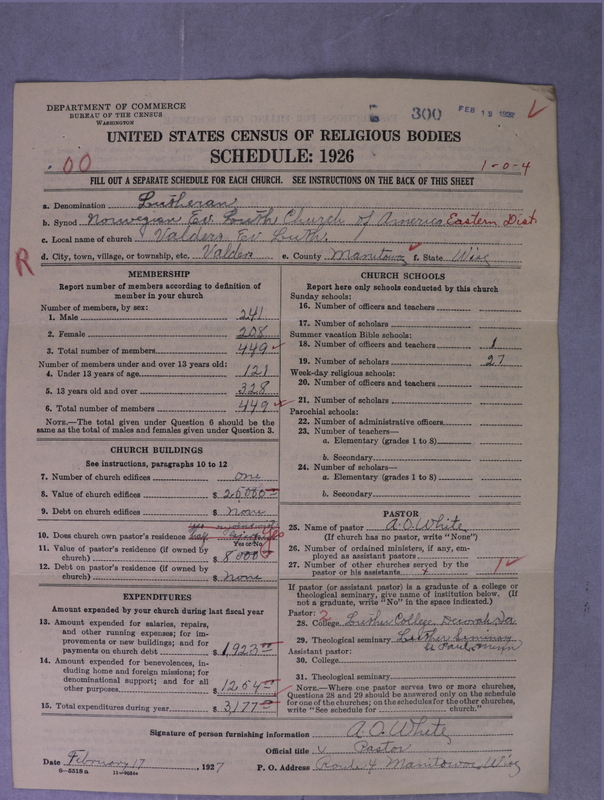 DEPARTMENT OF COMMERCE
BUREAU OF THE CENSUS
WASHINGTON
300
FEB 19
UNITED STATES CENSUS OF RELIGIOUS BODIES
SCHEDULE: 1926
.00
1-0-4
FILL OUT A SEPARATE SCHEDULE FOR EACH CHURCH. SEE INSTRUCTIONS ON THE BACK OF THIS SHEET
a. Denomination Lutheran
b. Synod Norwegian Ev. Luth Church of America Eastern Dist
c. Local name of church Valders Ev Luth.
d. City, town, village, or township, etc. Valders e. County Manitowoc f. State Wisc
R
MEMBERSHIP
Report number of members according to definition of member in your church
Number of members, by sex:
1. Male 241
2. Female 208
3. Total number of members 449
Number of members under and over 13 years old:
4. Under 13 years of age 121
5. 13 years old and over 328
6. Total number of members 449
NOTE.—The total given under Question 6 should be the same as the total of males and females given under Question 3.
CHURCH BUILDINGS
See instructions, paragraphs 10 to 12
7. Number of church edifices one
8. Value of church edifices $ 20,000
9. Debt on church edifices $ none
10. Does church own pastor's residence Yes
Yes or No
11. Value of pastor's residence (if owned by church) $ 8000
12. Debt on pastor's residence (if owned by church) $ none
EXPENDITURES
Amount expended by your church during last fiscal year
13. Amount expended for salaries, repairs, and other running expenses; for improvements or new buildings; and for payments on church debt $ 1923
14. Amount expended for benevolences, including home and foreign missions; for denominational support; and for all other purposes $ 1254
15. Total expenditures during year $ 3177
CHURCH SCHOOLS
Report here only schools conducted by this church
Sunday schools:
16. Number of officers and teachers
17. Number of scholars
Summer vacation Bible schools:
18. Number of officers and teachers 1
19. Number of scholars 27
Week-day religious schools:
20. Number of officers and teachers
21. Number of scholars
Parochial schools:
22. Number of administrative officers
23. Number of teachers—
a. Elementary (grades 1 to 8)
b. Secondary
24. Number of scholars—
a. Elementary (grades 1 to 8)
b. Secondary
PASTOR
25. Name of pastor A.O. White
(If church has no pastor, write "None")
26. Number of ordained ministers, if any, employed as assistant pastors
27. Number of other churches served by the pastor or his assistants 1
If pastor (or assistant pastor) is a graduate of a college or theological seminary, give name of institution below. (If not a graduate, write "No" in the space indicated.)
Pastor:
28. College Luther College, Decorah Ia
29. Theological seminary Luther Seminary St Paul, Minn
Assistant pastor:
30. College
31. Theological seminary
NOTE.—Where one pastor serves two or more churches, Questions 28 and 29 should be answered only on the schedule for one of the churches; on the schedules for the other churches, write "See schedule for church."
Signature of person furnishing information A.O. White
Official title Pastor
Date February 17, 1927 P. O. Address Route 4 Manitowoc, Wisc
8—5318 a